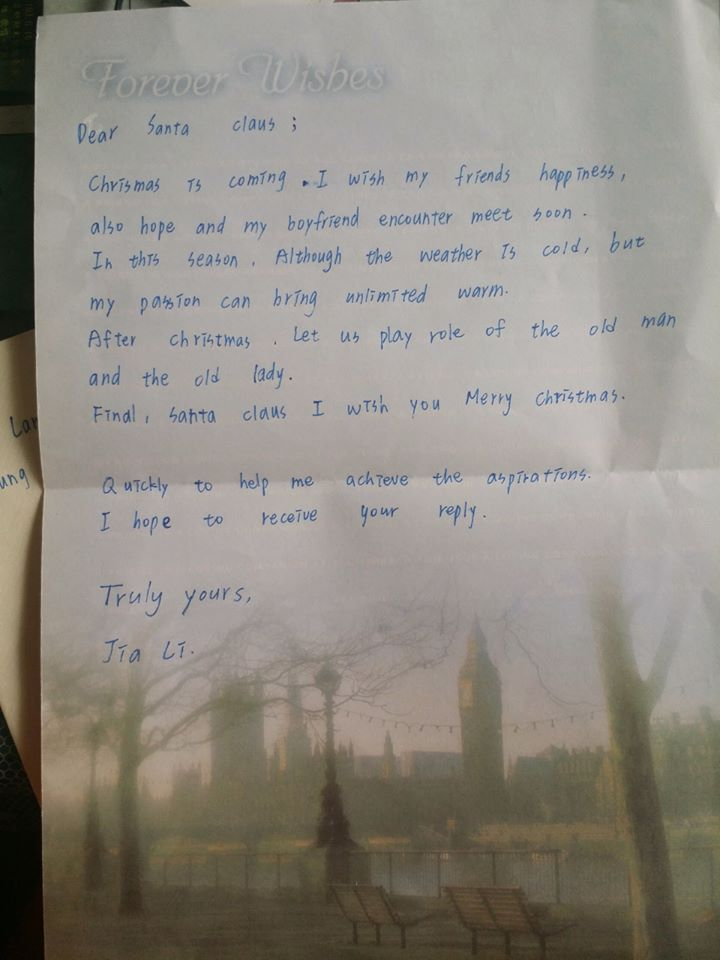 Forever Wishes
Dear Santa claus ;
Chrismas is coming . I wish my friends happiness,
also hope and my boyfriend encounter meet soon .
In this season . Although the weather is cold, but
my passion can bring unlimited warm.
After christmas . Let us play role of the old man
and the old lady.
Final, santa claus I wish you Merry christmas.
Quickly to help me achieve the aspirations.
I hope to receive your reply.
Truly yours,
Jia Li.
Lar
ung